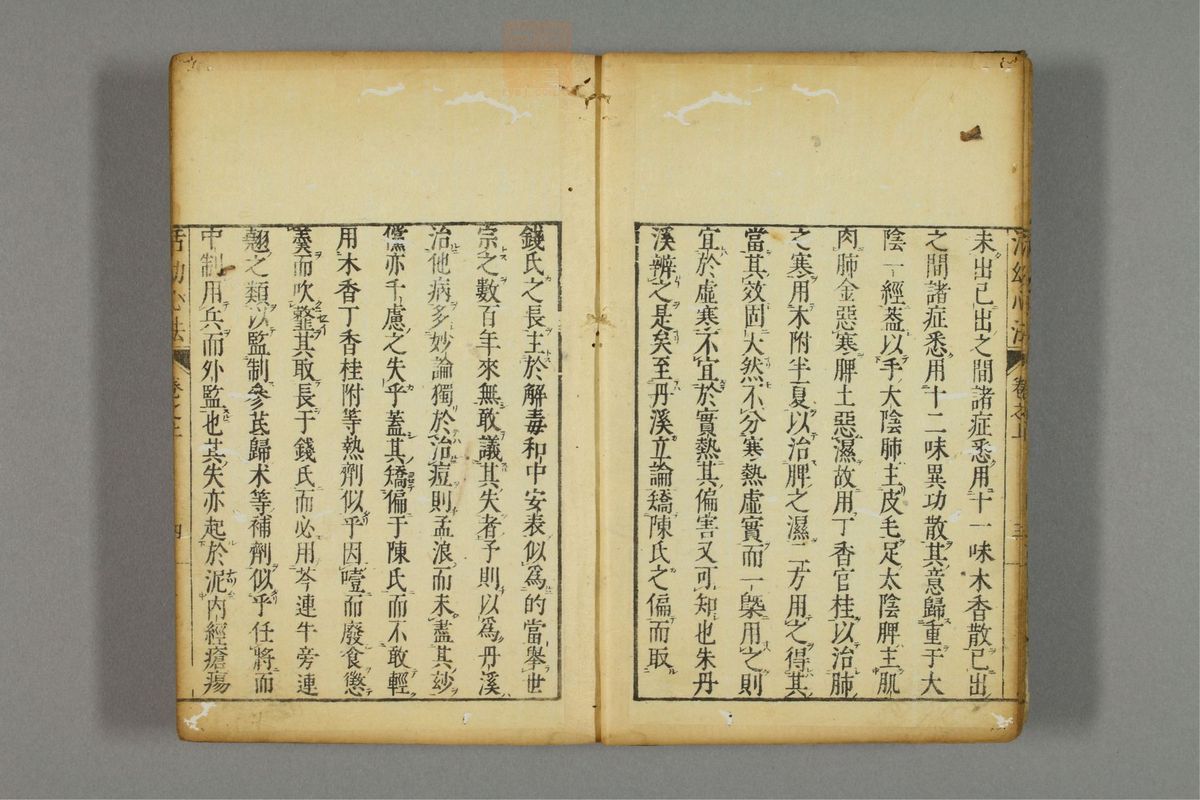 未出已出之間諸症悉用十一味木香散已出
之間諸症悉用十二味異功散其意歸重于大
陰一經葢以手大陰肺主皮毛足太陰脾主肌
肉肺金惡寒脾土惡濕故用丁香官桂以治肺
之寒用木附半夏以治脾之濕二方用之得其
當其效固大然不分寒熱虛實而一槩用之則
宜於虛寒不宜於實熱其偏害又可知也朱丹
溪辨之是矣至丹溪立論矯陳氏之偏而取
錢氏之長主於解毒和中安表似爲的當舉世
宗之數百年來無敢議其失者予則以爲丹溪
治他病多妙論獨於治痘則孟浪而未盡其妙
儻亦千慮之失乎蓋其矯偏于陳氏而不敢輕
用木香丁香桂附等熱劑似乎因噎而廢食懲
羹而吹虀其取長于錢氏而必用芩連牛旁連
翹之類以監制參芪歸术等補劑似乎任將而
中制用兵而外監也其失亦起於泥內經瘡瘍
活幼心法 卷之上